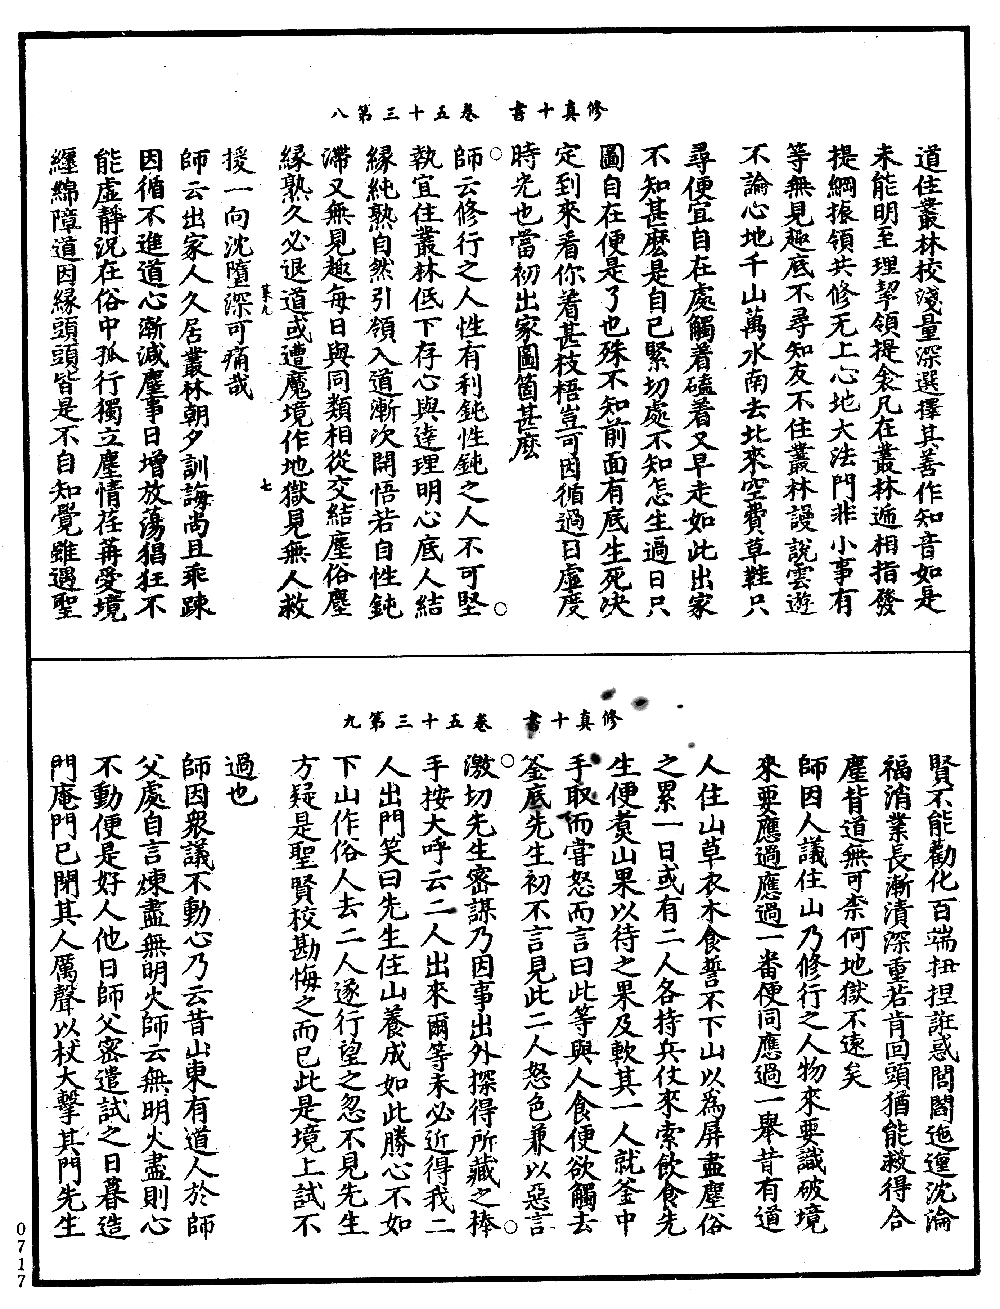 修真十書　卷五十三第八
道住叢林校淺量深選擇其善作知音如是
未能明至理挈領提衾凡在叢林遞相指發
提綱振領共修无上心地大法門非小事有
等無見趣底不尋知友不住叢林謾說雲遊
不論心地千山萬水南去北來空費草鞋只
尋便宜自在處觸着磕着又早走如此出家
不知甚麽是自己緊切處不知怎生過日只
圖自在便是了也殊不知前面有底生死決
定到來看你着甚枝梧豈可因循過日虛度
時光也當初出家圖箇甚麽
師云修行之人性有利鈍性鈍之人不可堅
執宜住叢林低下存心與達理明心底人結
緣純熟自然引領入道漸次開悟若自性鈍
滯又無見趣每日與同類相從交結塵俗塵
緣熟久必退道或遭魔境作地獄見無人救
七
授一向沈墮深可痛哉
師云出家人久居叢林朝夕訓誨尚且乖踈
因循不進道心漸減塵事日增放蕩猖狂不
能虛靜況在俗中孤行獨立塵情荏苒愛境
纏綿障道因緣頭頭皆是不自知覺雖遇聖
修真十書　卷五十三第九
賢不能勸化百端扭捏誑惑閭閻迤邐沈淪
福消業長漸漬深重若肯回頭猶能救得合
塵昔道無可柰何地獄不遠矣
師因人議住山乃修行之人物來要識破境
來要應過應過一番便同應過一舉昔有道
人住山草衣木食誓不下山以為屏盡塵俗
之累一日或有二人各持兵仗來索飲食先
生便煮山果以待之果及軟其一人就釜中
手取而嘗怒而言曰此等與人食便欲觸去
釜底先生初不言見此二人怒色兼以惡言
激切先生密謀乃因事出外探得所藏之棒
手按大呼云二人出來爾等未必近得我二
人出門笑曰先生住山養成如此勝心不如
下山作俗人去二人遂行望之忽不見先生
方疑是聖賢校勘悔之而已此是境上試不
過也
師因衆議不動心乃云昔山東有道人於師
父處自言煉盡無明火師云無明火盡則心
不動便是好人他日師父密遣試之日暮造
門庵門已閉其人厲聲以杖大擊其門先生
0717